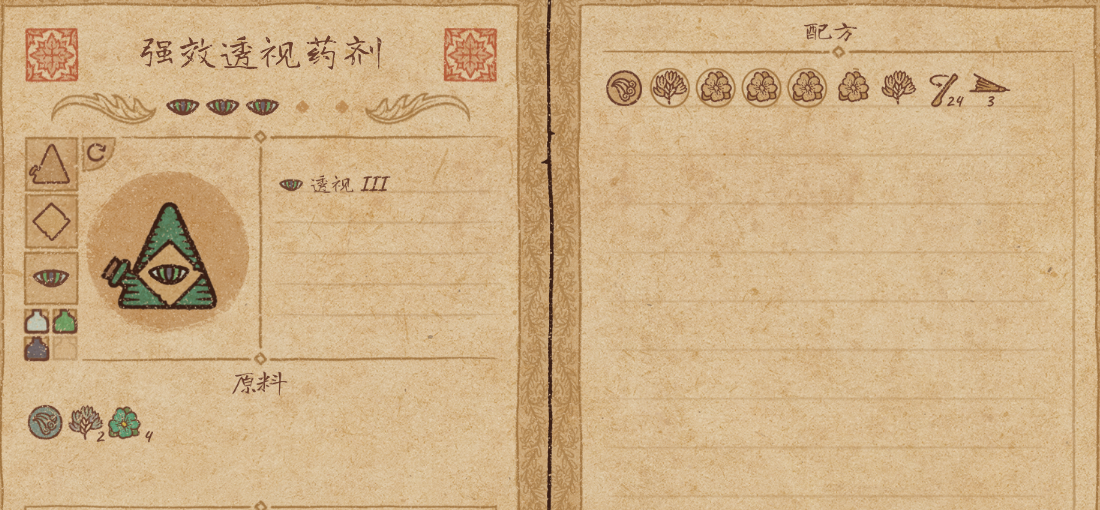 强效透视药剂
透视 III
原料
2 4
配方
24 3